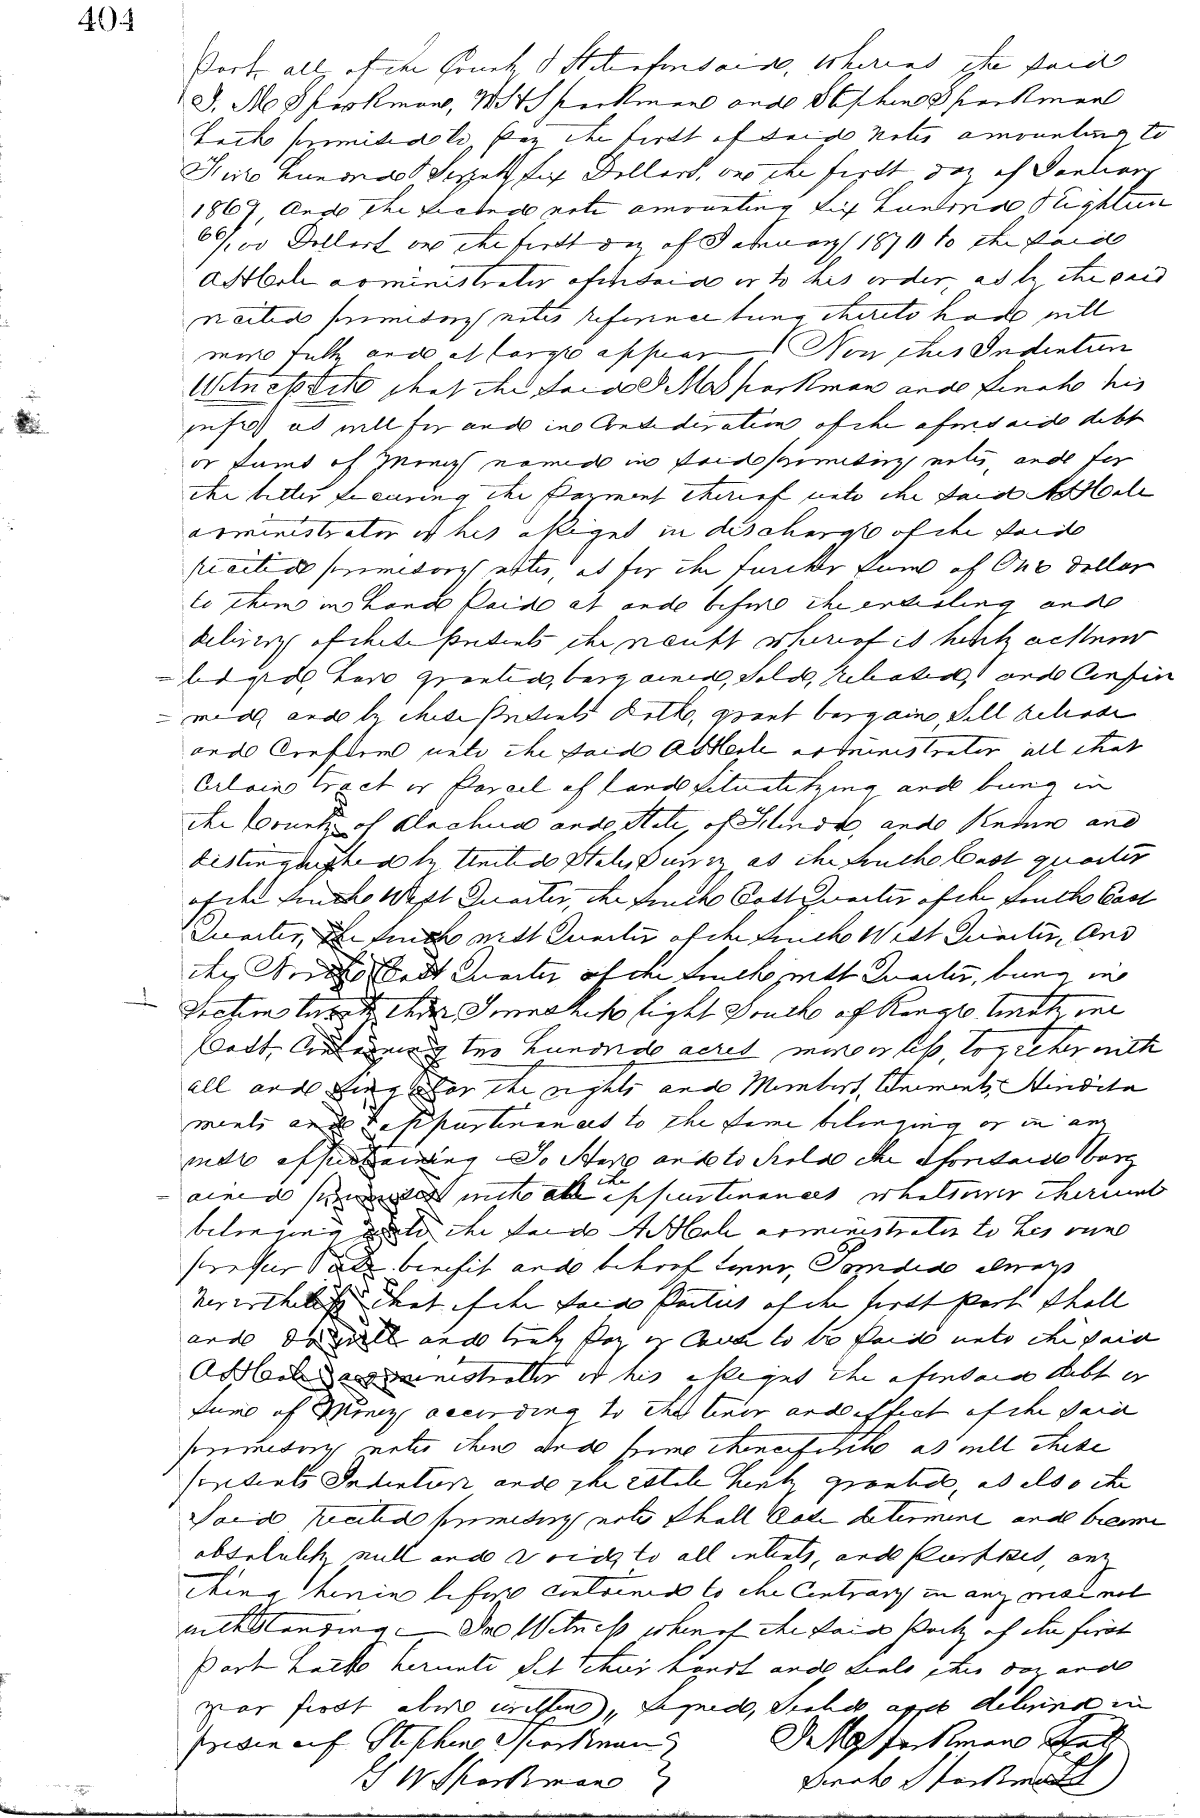 404
Part, all of the County & State aforesaid, Whereas the said
J. M Sparkman, W H Sparkman and Stephen Sparkman
hath promised to pay the first of said Notes amounting to
Five hundred & Seventy Six Dollars, on the first day of January
1869, And the second note amounting Six hundred & Eighteen
66/100 Dollars on the first day of January 1870 to the said
administrator aforesaid or to his order, as by the said
recited promisory notes reference being thereto had will
more fully and at large appear Now this Indenture
Witnesseth that the said J M Sparkman and Senah his
wife as well for and in Consideration of the aforesaid debt
or sums of Money named in said promisory notes, and for
the better securing the Payment thereof unto the said
administrator or his assigns in discharge of the said
recited promisory notes, as for the further sum of One dollar
to them in hand Paid at and before the ensealing and
delivery of these presents the receipt whereof is hereby acknow
= ledged, have granted, bargained, Sold, released, and Confir
= med, and by these presents doth, grant bargain, Sell release
and Confirm unto the said administrator all that
Certain tract or Parcel of land situate lying and being in
the County of Alachua and State of Florida, and Known and
distinguished by United States Survey as the South East quarter
of the South West Quarter, the South East Quarter of the South East
Quarter, the South west Quarter of the South West Quarter, And
the North East Quarter of the South west Quarter, being in
Section twenty three Township Eight South of Range twenty one
East, Containing two hundred acres more or less, together with
all and singular the rights and Members, tenements, Heredita
ments and appurtenances to the same belonging or in any
wise appertaining To Have and to Hold the aforesaid barg
= ained premises with all the appurtenances whatsoever thereunto
belonging unto the said administrator to his own
proper use benefit and behoof forever, Provided always
Nevertheless that if the said Parties of the first part shall
and do well and truly Pay or Cause to be Paid unto the said
administrator or his assigns the aforesaid debt or
sum of Money according to the tenor and effect of the said
promisory notes then and from thenceforth as well these
presents Indenture and the estate hereby granted, as also the
Said recited promisory notes shall Cease determine and become
absolutely null and void, to all intents, and Purposes, any
thing herein before contained to the Contrary in any wise not
withstanding In Witness whereof the said Party of the first
Part hath hereunto Set their hands and seals this day and
year first above written, Signed, Sealed and delivered in
presence of Stephen Sparkman J. M Sparkman Seal
G W Sparkman Senah Sparkman